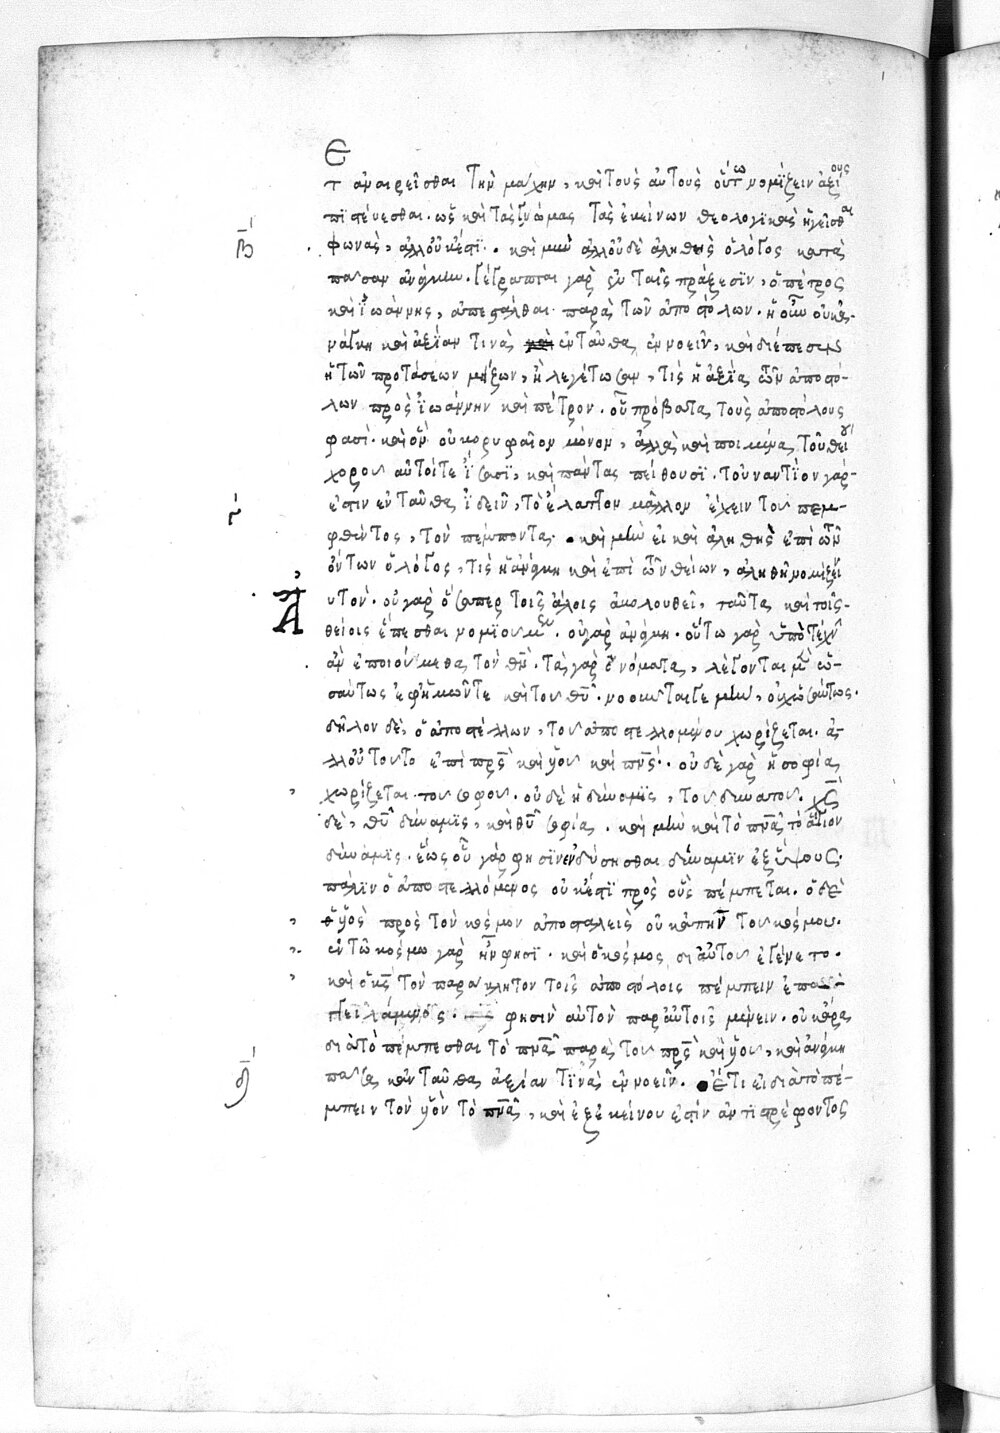 Ε
τ ἀναιρεῖσθαι τὴν μάχην, καὶ τοὺς αὐτοὺς οὕτω νομίζειν ἀξίους
πιστεύεσθαι. ὡς καὶ τὰς γνώμας τὰς ἐκείνων θεολογικὰς ἡγεῖσθαι
β φωνάς, ἀλλ' οὐκ ἔστι. καὶ μὴν ἀλλ' οὐδὲ ἀληθὴς ὁ λόγος κατὰ
πᾶσαν ἀνάγκην. γέγραπται γὰρ ἐν ταῖς πράξεσιν, ὁ πέτρος
καὶ ἰωάννης, ἀπεστάλθαι παρὰ τῶν ἀποστόλων. ἢ οὖν οὐκ ἀ-
νάγκη καὶ ἀξίαν τινὰ ἐνταῦθα ἐννοεῖν, καὶ διέπεσεν
ἡ τῶν προτάσεων μείζων, ἢ λεγέτωσαν, τίς ἡ ἀξία τῶν ἀποστό-
λων πρὸς ἰωάννην καὶ πέτρον. οὗ πρόβατα τοὺς ἀποστόλους
φασί. καὶ ὃν οὐ κορυφαῖον μόνον, ἀλλὰ καὶ ποιμένα τοῦ θείου
χοροῦ αὐτοί τε ἴσασι, καὶ πάντας πείθουσι. τοὐναντίον γάρ
ἐστιν ἐνταῦθα ἰδεῖν, τὸ ἔλαττον μᾶλλον ἔχειν τοῦ πεμ-
φθέντος, τὸν πέμποντα. καὶ μὴν εἰ καὶ ἀληθὴς ἐπὶ τῶν
ὄντων ὁ λόγος, τίς ἡ ἀνάγκη καὶ ἐπὶ τῶν θείων, ἀληθῆ νομίζειν
αυτόν. οὐ γὰρ ὅσαπερ τοῖς ἄλοις ἀκολουθεῖ, ταῦτα καὶ τοῖς
θείοις ἕπεσθαι νομιοῦμεν. οὐ γὰρ ἀνάγκη. οὕτω γὰρ ὑπὸ τέχνην
ἂν ἐποιούμεθα τὸν θν. τὰ γὰρ ὀνόματα, λέγονται μὲν ὡ-
σαύτως ἐφ' ἡμῶν τε καὶ τοῦ θυ. νοοῦνται γε μὴν, οὐχ ὡσαύτως.
δῆλον δὲ, ὁ ἀποστέλλων, τοῦ ἀποστελλομένου χωρίζεται. ἀ-
λλ' οὐ τοῦτο ἐπὶ πρς καὶ υἱοῦ καὶ πνς. οὐδὲ γὰρ ἡ σοφία
χωρίζεται τοῦ σοφοῦ. οὐδὲ ἡ δύναμις, τοῦ δυνατοῦ. χς
δὲ, θυ δύναμις, καὶ θυ σοφία. καὶ μὴν καὶ τὸ πνα τὸ ἅγιον
δύναμις. ἕως οὗ γάρ φησιν ἐνδύσησθαι δύναμιν ἐξ ὕψους.
πάλιν ὁ ἀποστελλόμενος οὐκ ἔστι πρὸς οὓς πέμπεται. ὁ δὲ
υἱὸς πρὸς τὸν κόσμον ἀποσταλεὶς οὐκ ἀπῆν τοῦ κόσμου.
ἐν τῶ κόσμω γὰρ ἦν φησι. καὶ ὁ κόσμος δι' αὐτοῦ ἐγένετο.
καὶ ὁ κς τὸν παράκλητον τοῖς ἀποστόλοις πέμπειν ἐπα-
γγειλάμενος. φησὶν αὐτὸν παρ' αὐτοῖς μένειν. οὐκ ἄρα
διὰ τὸ πέμπεσθαι τὸ πνα παρὰ τοῦ πρς καὶ υἱοῦ, καὶ ἀνάγκη
πᾶσα κἀνταῦθα ἀξίαν τινὰ ἐννοεῖν. ἔτι εἰ διὰ τὸ πέ-
μπειν τὸν υἱὸν τὸ πνα, καὶ ἐξ ἐκείνου ἐστίν ἀντιστρέφοντος